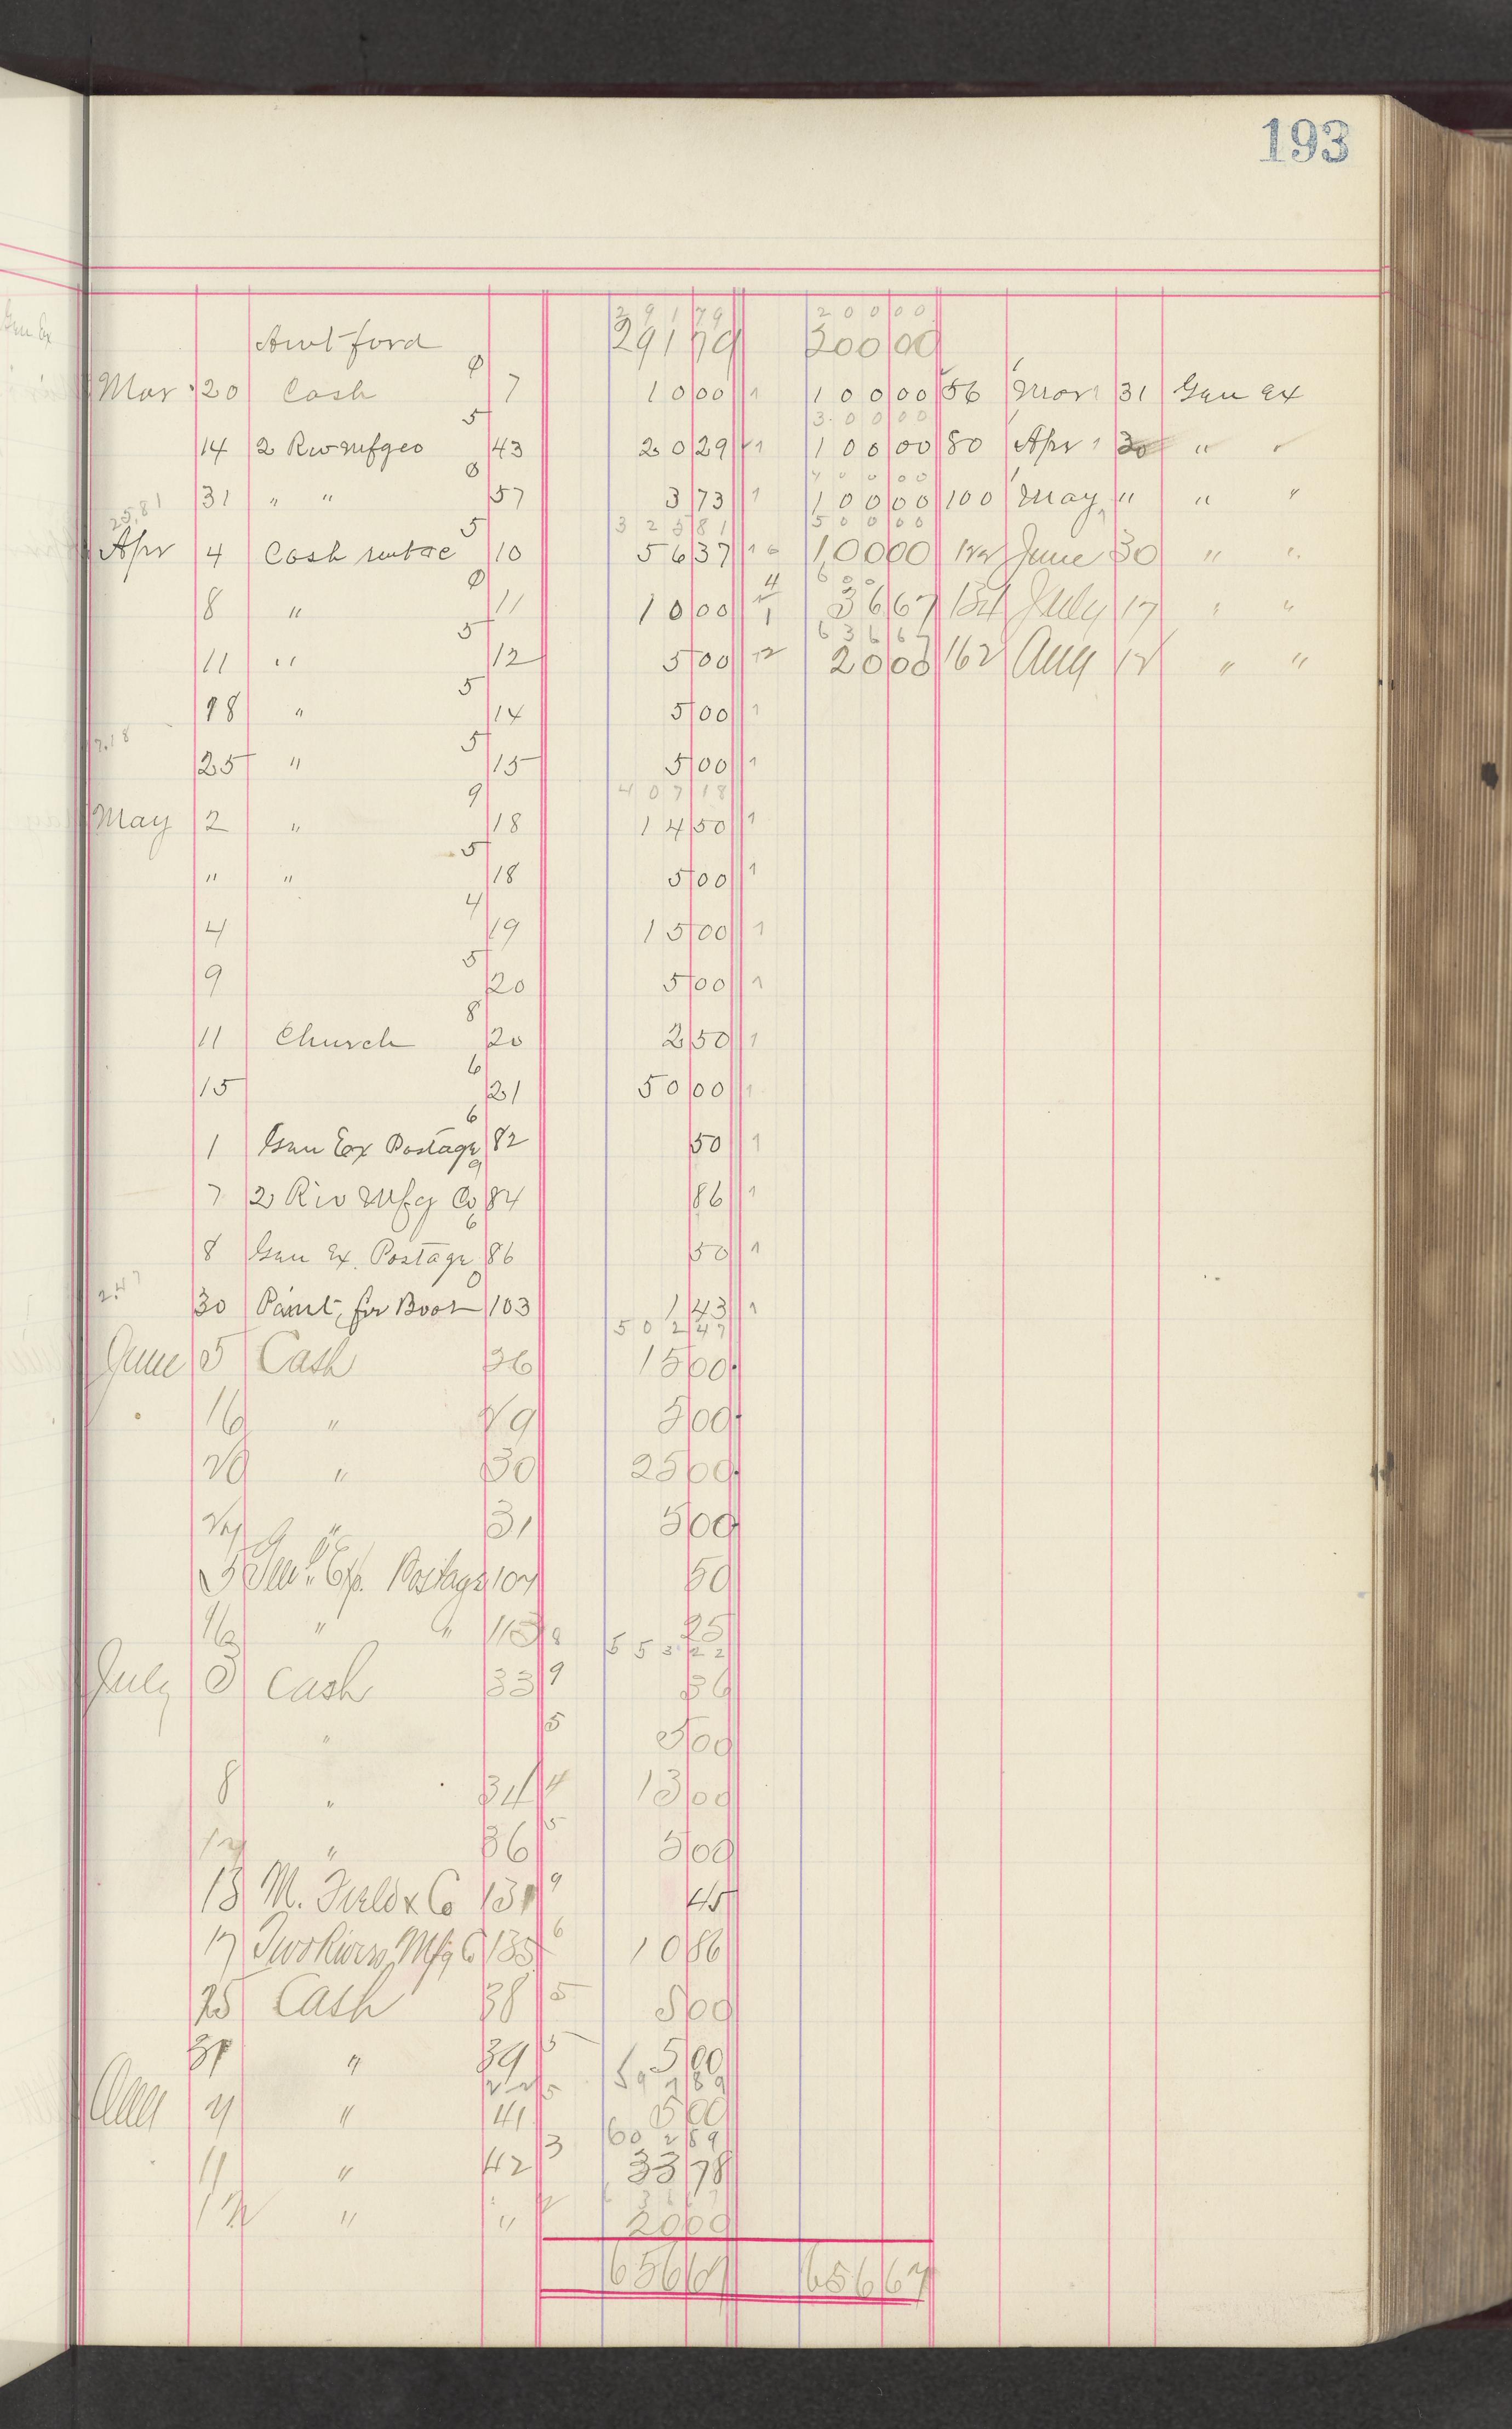 193
Amt ford 291 79 200 00
Mar 20 Cash 7 10 00 1 100 00 56 Mar 31 Gen Ex
14 2 Riv Mfg Co 43 20 29 1 100 00 80 Apr 30 " "
31 " " 57 3 73 1 100 00 100 May " " "
25.81 32581 50000
Apr 4 Cash 10 56 37 100 00 June 30 " "
8 " 11 10 00 36 67 July 17 " "
63667
11 " 12 5 00 12 20 00 162 Aug 12 " "
18 " 14 5 00 1
25 " 15 5 00 1
40718
May 2 " 18 14 50 1
" " 18 5 00 1
4 19 15 00 1
9 20 5 00 1
11 Church 20 2 50 1
15 21 50 00 1
1 Gen Ex Postage 82 50 1
7 2 Riv Mfg Co 84 86 1
8 Gen Ex. Postage 86 50 1
30 Paint for Boat 103 1 43 1
50247
June 5 Cash 26 15 00
16 " 29 5 00
20 " 30 25 00
" 31 5 00
5 Gen. Ex. Postage 107 50
16 " " 25
55322
July 3 Cash 33 9 36
" 5 5 00
8 " 34 4 13 00
12 " 36 5 5 00
13 M. Field & Co 131 9 45
17 Two Rivers Mfg Co 135 6 10 86
25 Cash 38 5 5 00
31 " 39 5 5 00
59789
Aug 4 " 41 5 00
60289
11 " 42 3 33 78
12 " " 20 00
656 67 656 67